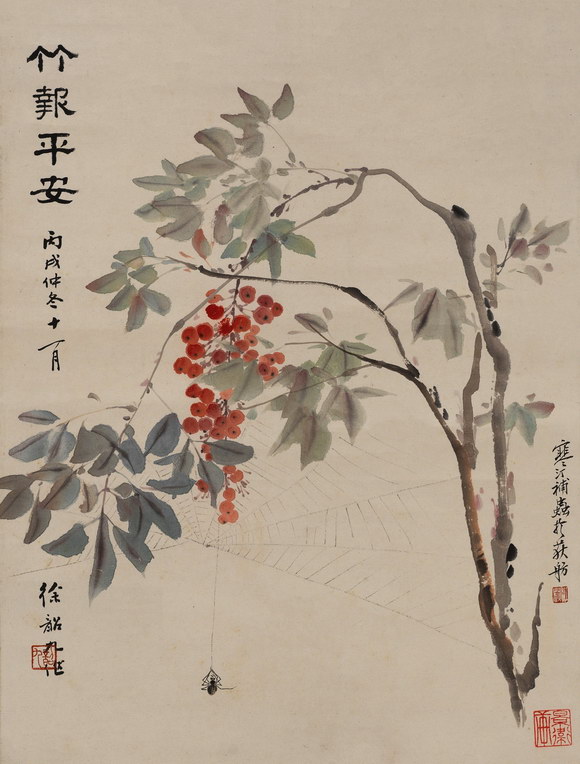 竹報平安
丙戌仲冬十一月
徐韶九作
寒汀補蟲於荻舫